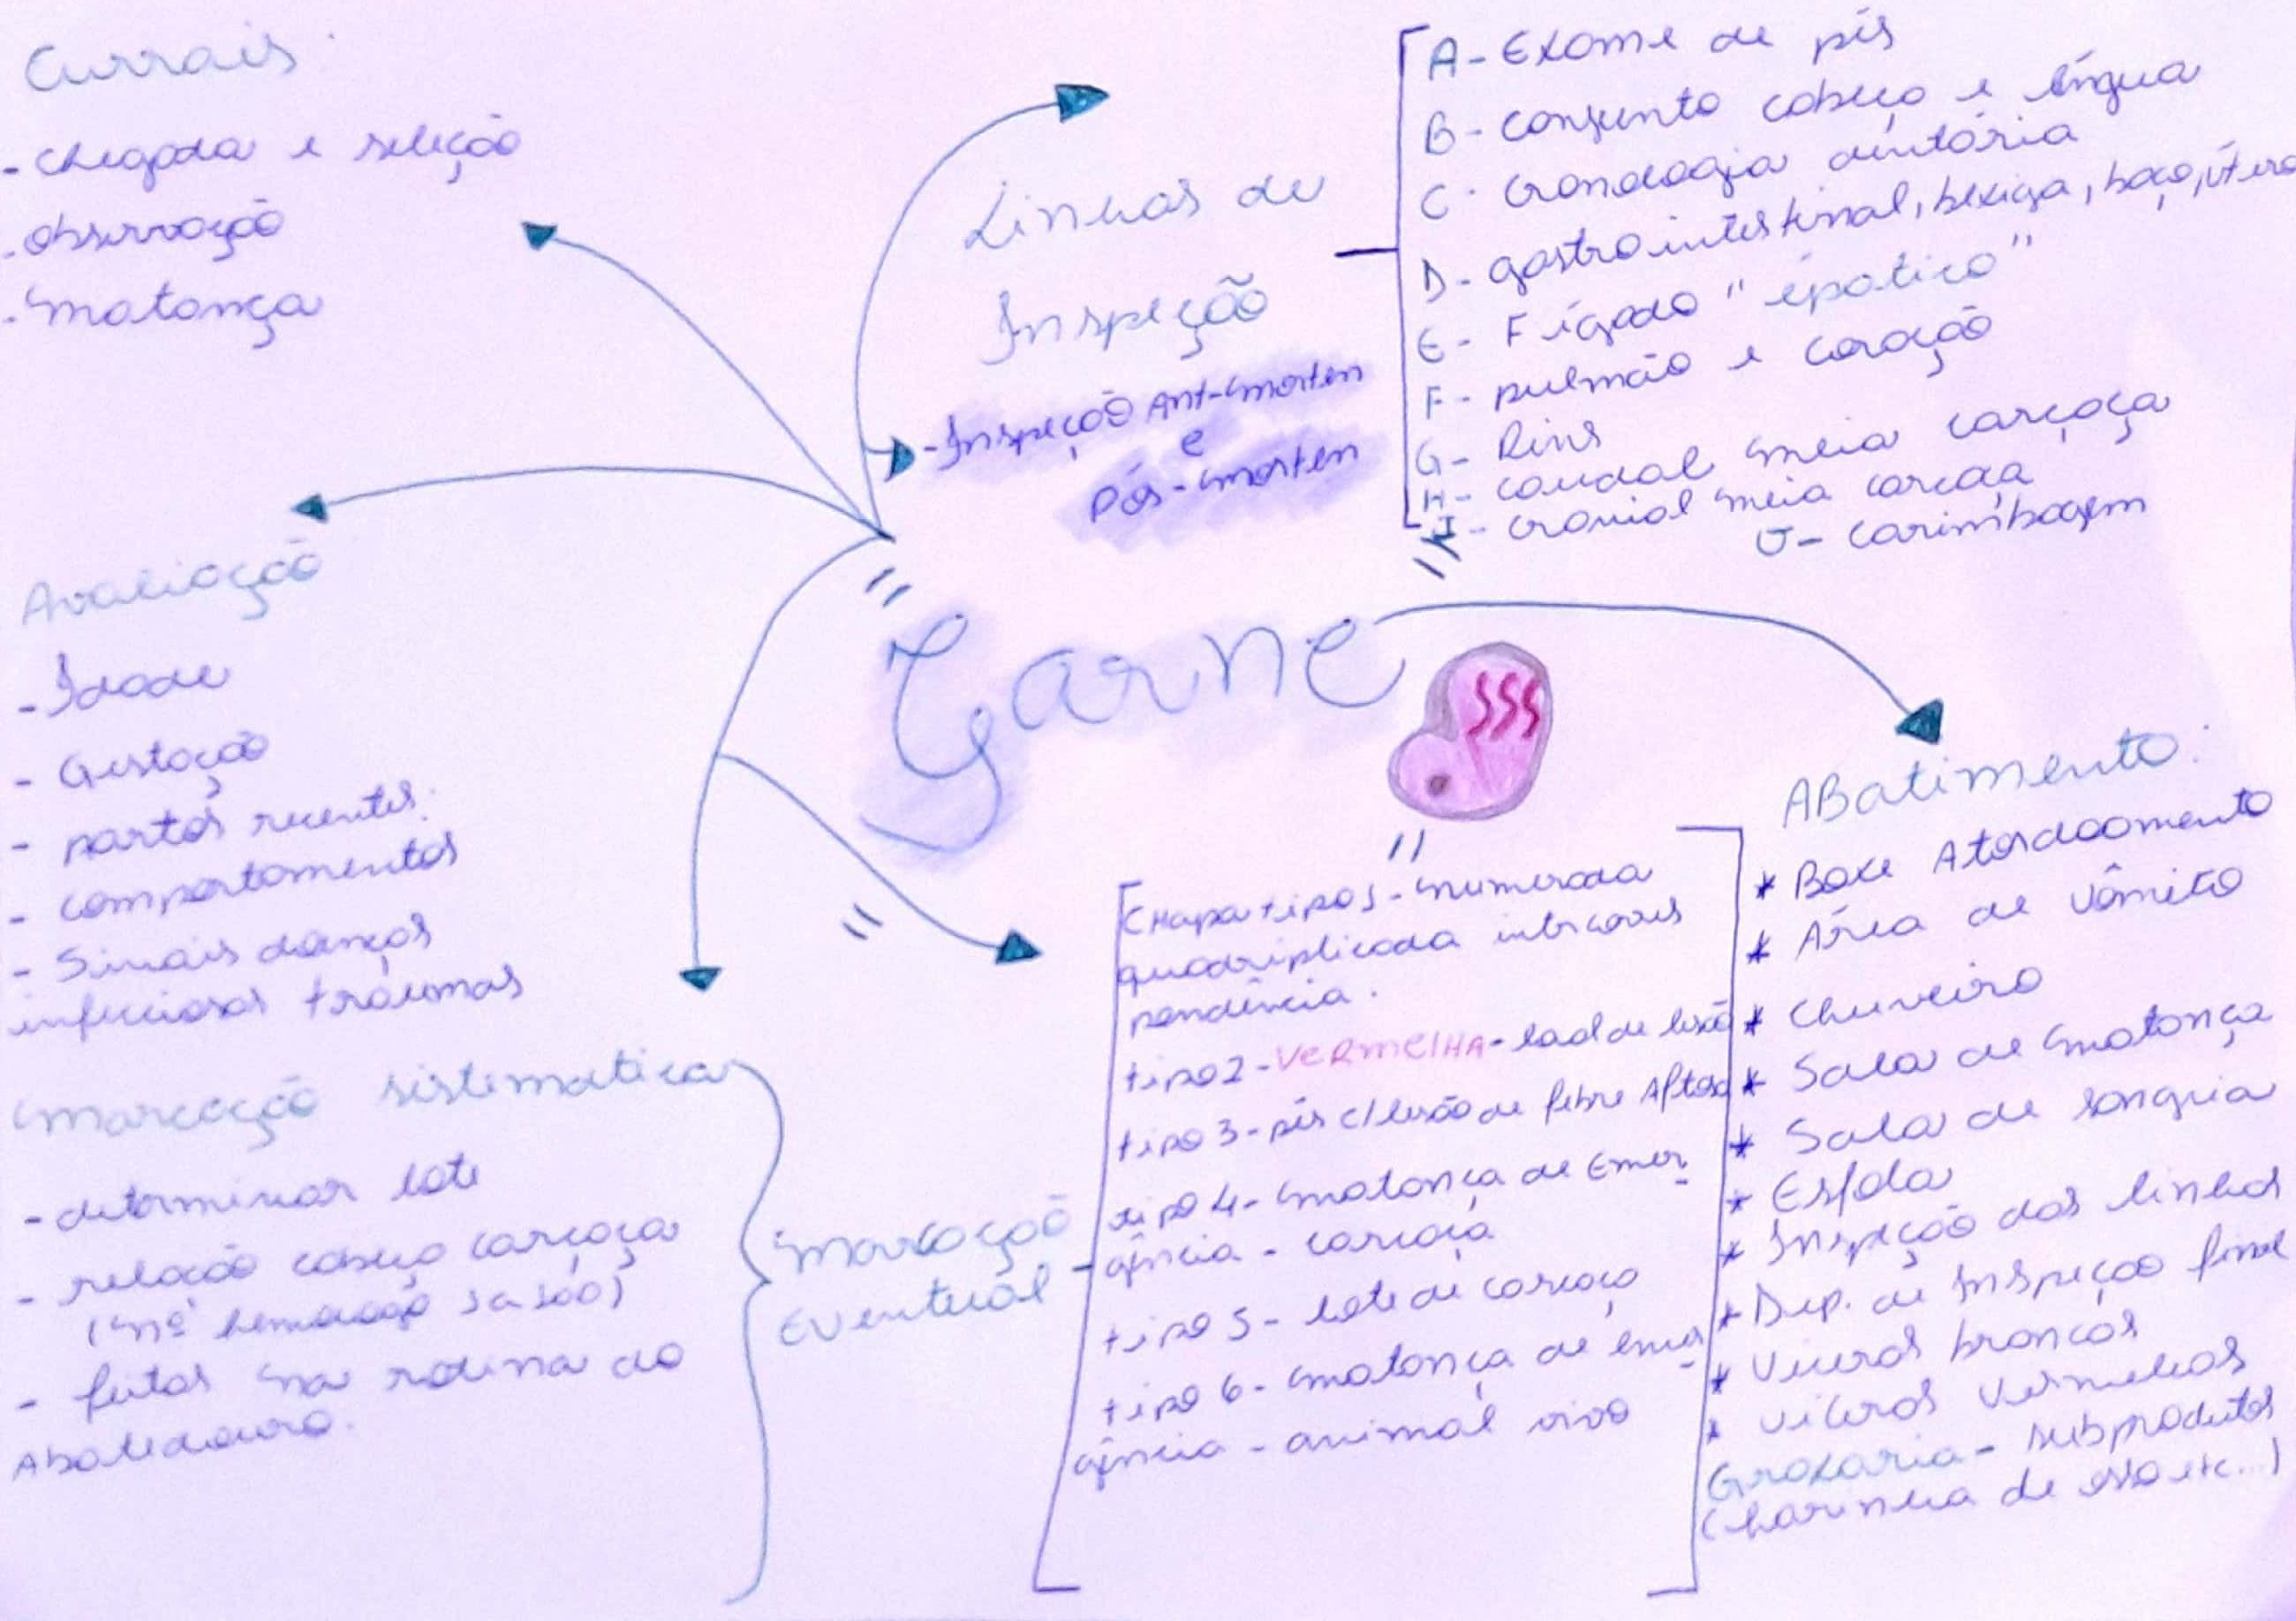 Currais:
- chegada e seleção
- observação
- matança
Linhas de
Inspeção
- Inspeção Ant-morten
e
Pós-morten
A- Exame de pés
B- conjunto cabeça e língua
C- cronologia dentária
D- gastrointestinal, bexiga, baço, útero
E- Fígado "épatico"
F- pulmão e coração
G- Rins
H- caudal meia carcaça
I- cranial meia carcaça
J- carimbagem
Avaliação
- Idade
- Gestação
- partos recentes.
- comportamentos
- Sinais doenças
infecciosas traumas
"Carne"
SSS
Marcação sistematica
- determinar lote
- relação cabeça carcaça
(nº
- feitas na rotina do
Abatedouro.
Marcação
Eventual
Chapa tipo 1- numerada
quadriplicada
pendência.
tipo 2- VERMELHA- local de lesão
tipo 3- pés c/ lesão de febre Aftosa
tipo 4- matança de Emer
gência - carcaça
tipo 5- lote de carcaça
tipo 6- matança de emer
gência - animal vivo
ABatimento:
* Boxe Atordoamento
* Área de vômito
* Chuveiro
* Sala de matança
* Sala de sangria
* Esfola
* Inspeção das linhas
* Dep. de Inspeção final
* Viceras brancas
* viceras vermelhas
Graxaria- subprodutos
(harinha de osso etc...)